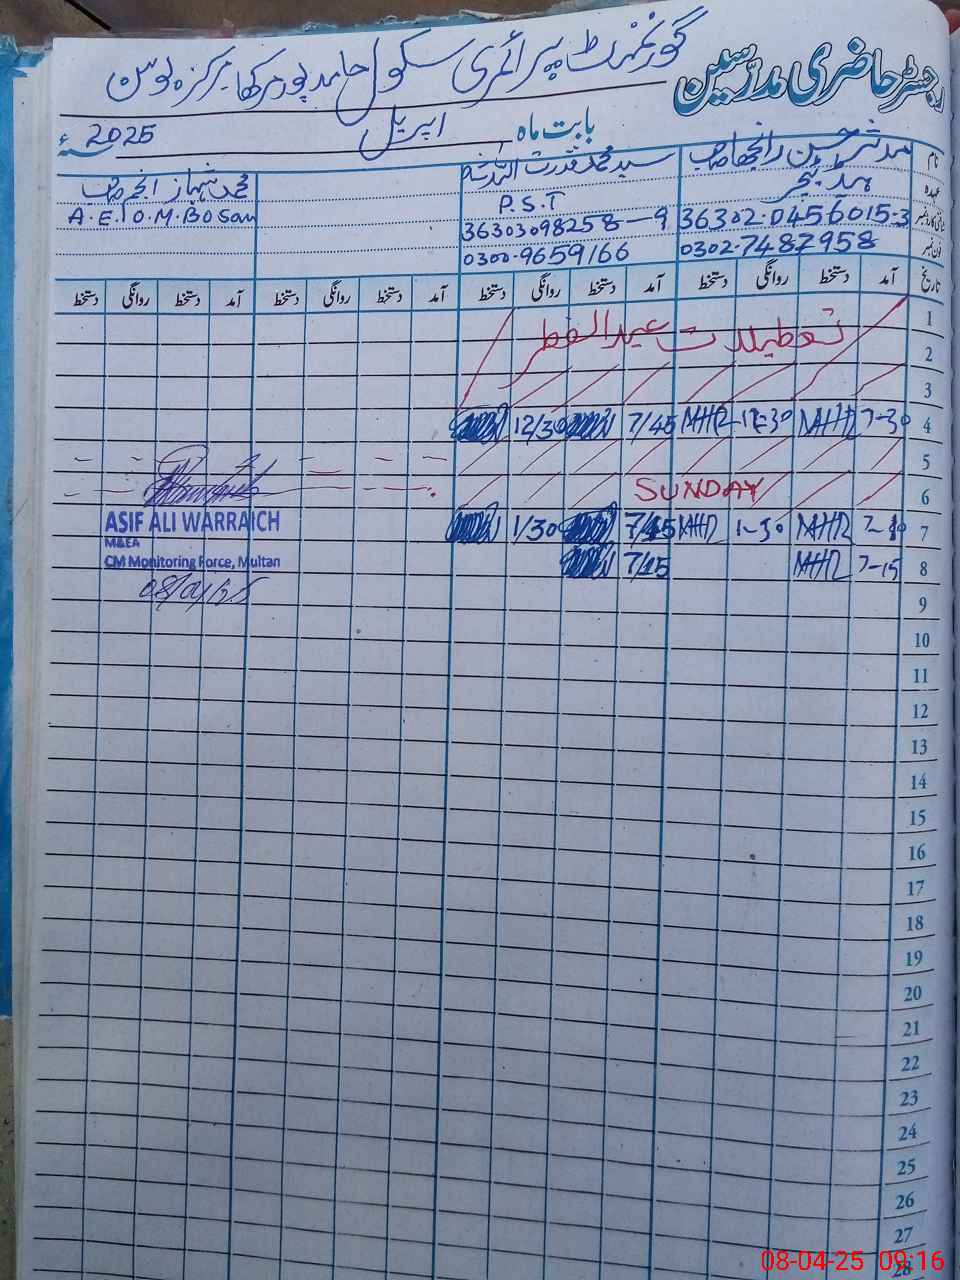 رجسٹر حاضری مدرسین
گورنمنٹ پرائمری سکول حامد پور مرکھا مرکز بوسن
بابت ماہ اپریل 2025ء
نام مدثر حسین رانجھا صاحب سید محمد قدرت اللہ شاہ محمد شہباز انجم صاحب
عہدہ ہیڈ ٹیچر P.S.T A.E.O.M.Bosan
36302-0456015-3 36303098258-9
فون نمبر 0302-7487958 0300-9659166
تاریخ آمد دستخط روانگی دستخط آمد دستخط روانگی دستخط آمد دستخط روانگی دستخط آمد دستخط روانگی دستخط
1 تعطیلات عیدالفطر
2
3
4 7-30 MHR 12-30 MHR 7/45 12/30
5
6 SUNDAY
7 MHR 1-30 MHR 7/45 1/30
8 7-15 MHR 7/15
ASIF ALI WARRAICH
M&EA
CM Monitoring Force, Multan
9
10
11
12
13
14
15
16
17
18
19
20
21
22
23
24
25
26
27
28
08-04-25 09:16